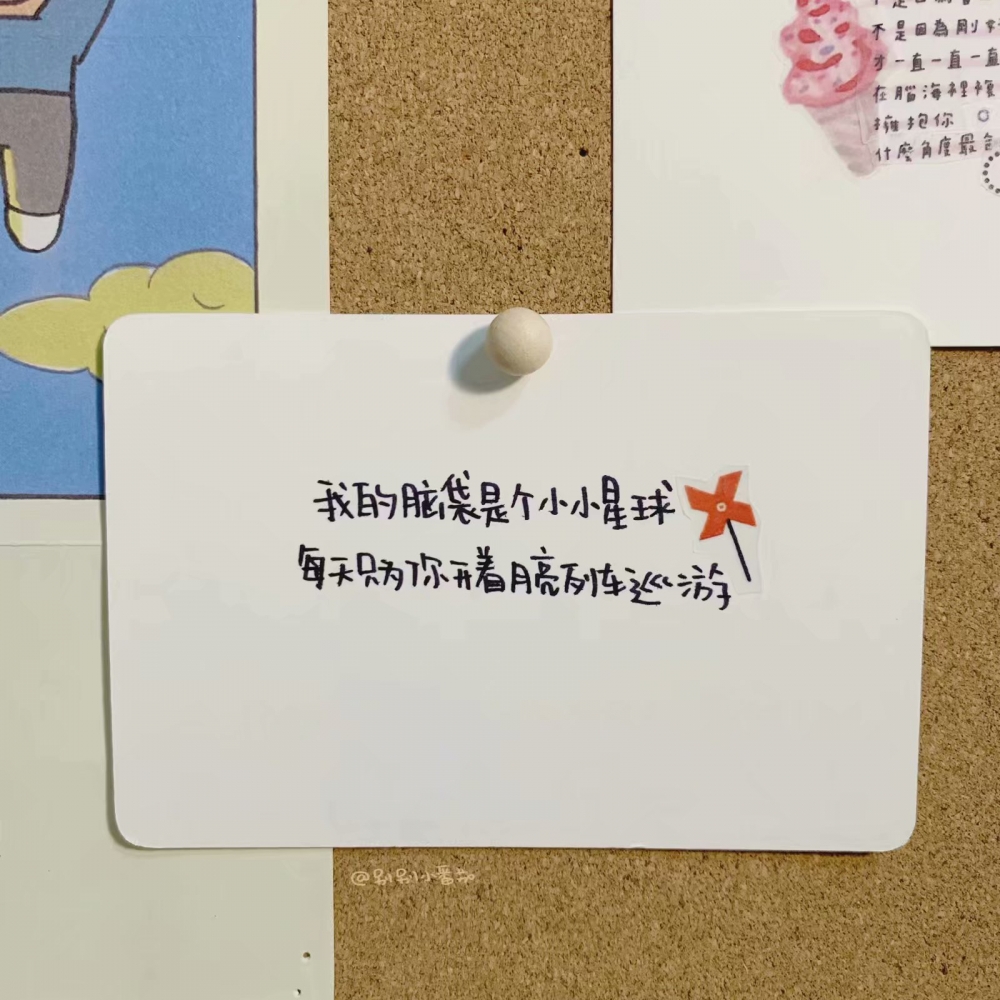 不是因為剛
才一直一直一直
在腦海裡
擁抱你
什麼角度最
我的脑袋是个小小星球
每天只为你开着月亮列车巡游